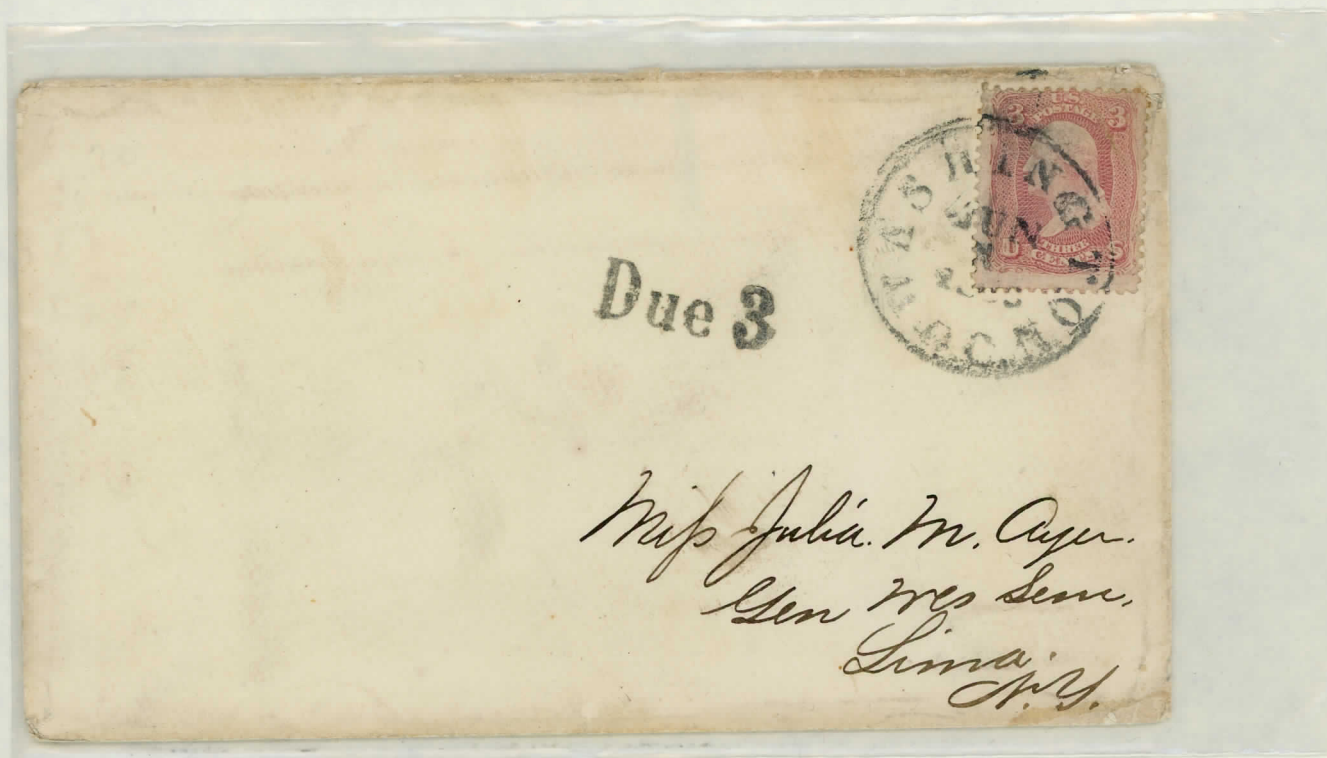 3 U.S. 3
POSTAGE
THREE
CENTS
U S
WASHINGTON D.C.
JUN
Due 3
Miss Julia. M. Ayer.
Gen Wes Sem.
Lima.
N.Y.